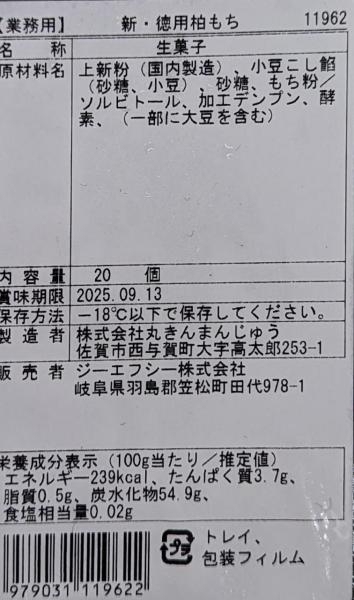 【業務用】 新・徳用柏もち 11962
名称 生菓子
原材料名 上新粉（国内製造）、小豆こし餡
（砂糖、小豆）、砂糖、もち粉／
ソルビトール、加工デンプン、酵
素、（一部に大豆を含む）
内容量 20 個
賞味期限 2025.09.13
保存方法 －18℃以下で保存してください。
製造者 株式会社丸きんまんじゅう
佐賀市西与賀町大字高太郎253-1
販売者 ジーエフシー株式会社
岐阜県羽島郡笠松町田代978-1
栄養成分表示（100g当たり／推定値）
エネルギー239kcal、たんぱく質3.7g、
脂質0.5g、炭水化物54.9g、
食塩相当量0.02g
プラ トレイ、
包装フィルム
979031 119622